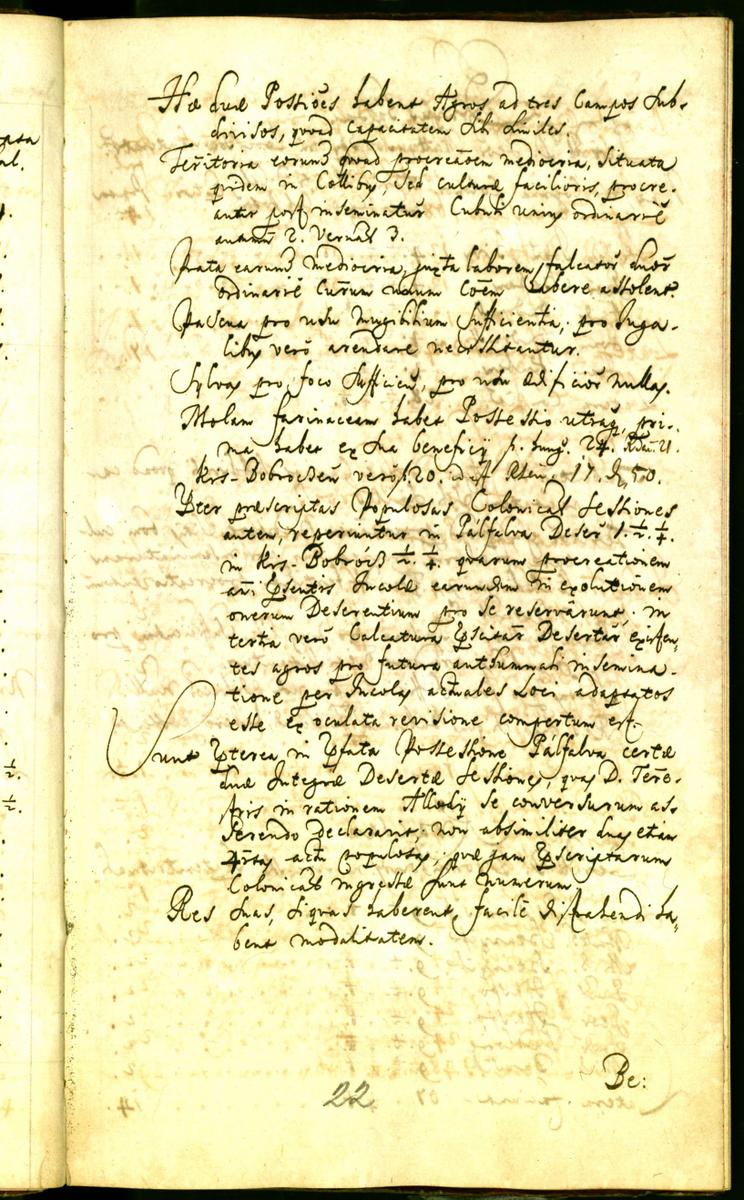 Hæ duæ Possiões habent Agros ad tres Campos sub-
divisos, quoad capacitatem sibi similes.
Territoria earum quoad procreãoẽm mediocria, situata
quidem in Collibus, sed culturæ facilioris, procre-
antur post inseminatur̃ Cubuli unius ordinariè
autum̃ 2. Vernal 3.
Prata earum mediocria, juxta laborem falcator̃ duor̃
ordinariè Currum unum Cõem habere assolent.
Pascua pro usu Mugibilium sufficientia, pro Juga-
libus verò arendare necessitantur.
Sylvas pro foco sufficien, pro usu ædificior̃ nullas.
Molam farinaceam habet Possessio utraq, pri-
ma habet ex sua beneficij f. hung. 24. Rhen. 21.
Kis-Bobrocsen verò f. 20. id est Rhen. 17. d. 50.
Pter præscriptas Populosas Colonical Sessiones
autem, reperiuntur in Pálfalva Deser̃ 1. ½. ¼.
in Kis-Bobrócs ½. ¼. quarum procreationem
añi Pſentis Incolæ earundem in exolutionem
onerum Desertium pro se reservârunt. in
tertia verò Calcatura Pscitar̃ Desertar̃ existen-
tes agros pro futura authumnali insemina-
tione per Incolas actuales Loci adaptatos
esse ex oculata revisione compertum est.
Sunt Pterea in Pfata Possessione Pálfalva certæ
duæ Integræ Desertæ Sessiones, quas D. Terre-
stris in rationem Allodij se conversurum as-
serendo declaravit, non absimiliter duas etiam
4rtas actu populosas, quæ jam Pscriptarum
Colonical ingressæ sunt numerum.
Res suas, siquas haberent, facilè distrahendi ha-
bent modalitatem.
Be:
22